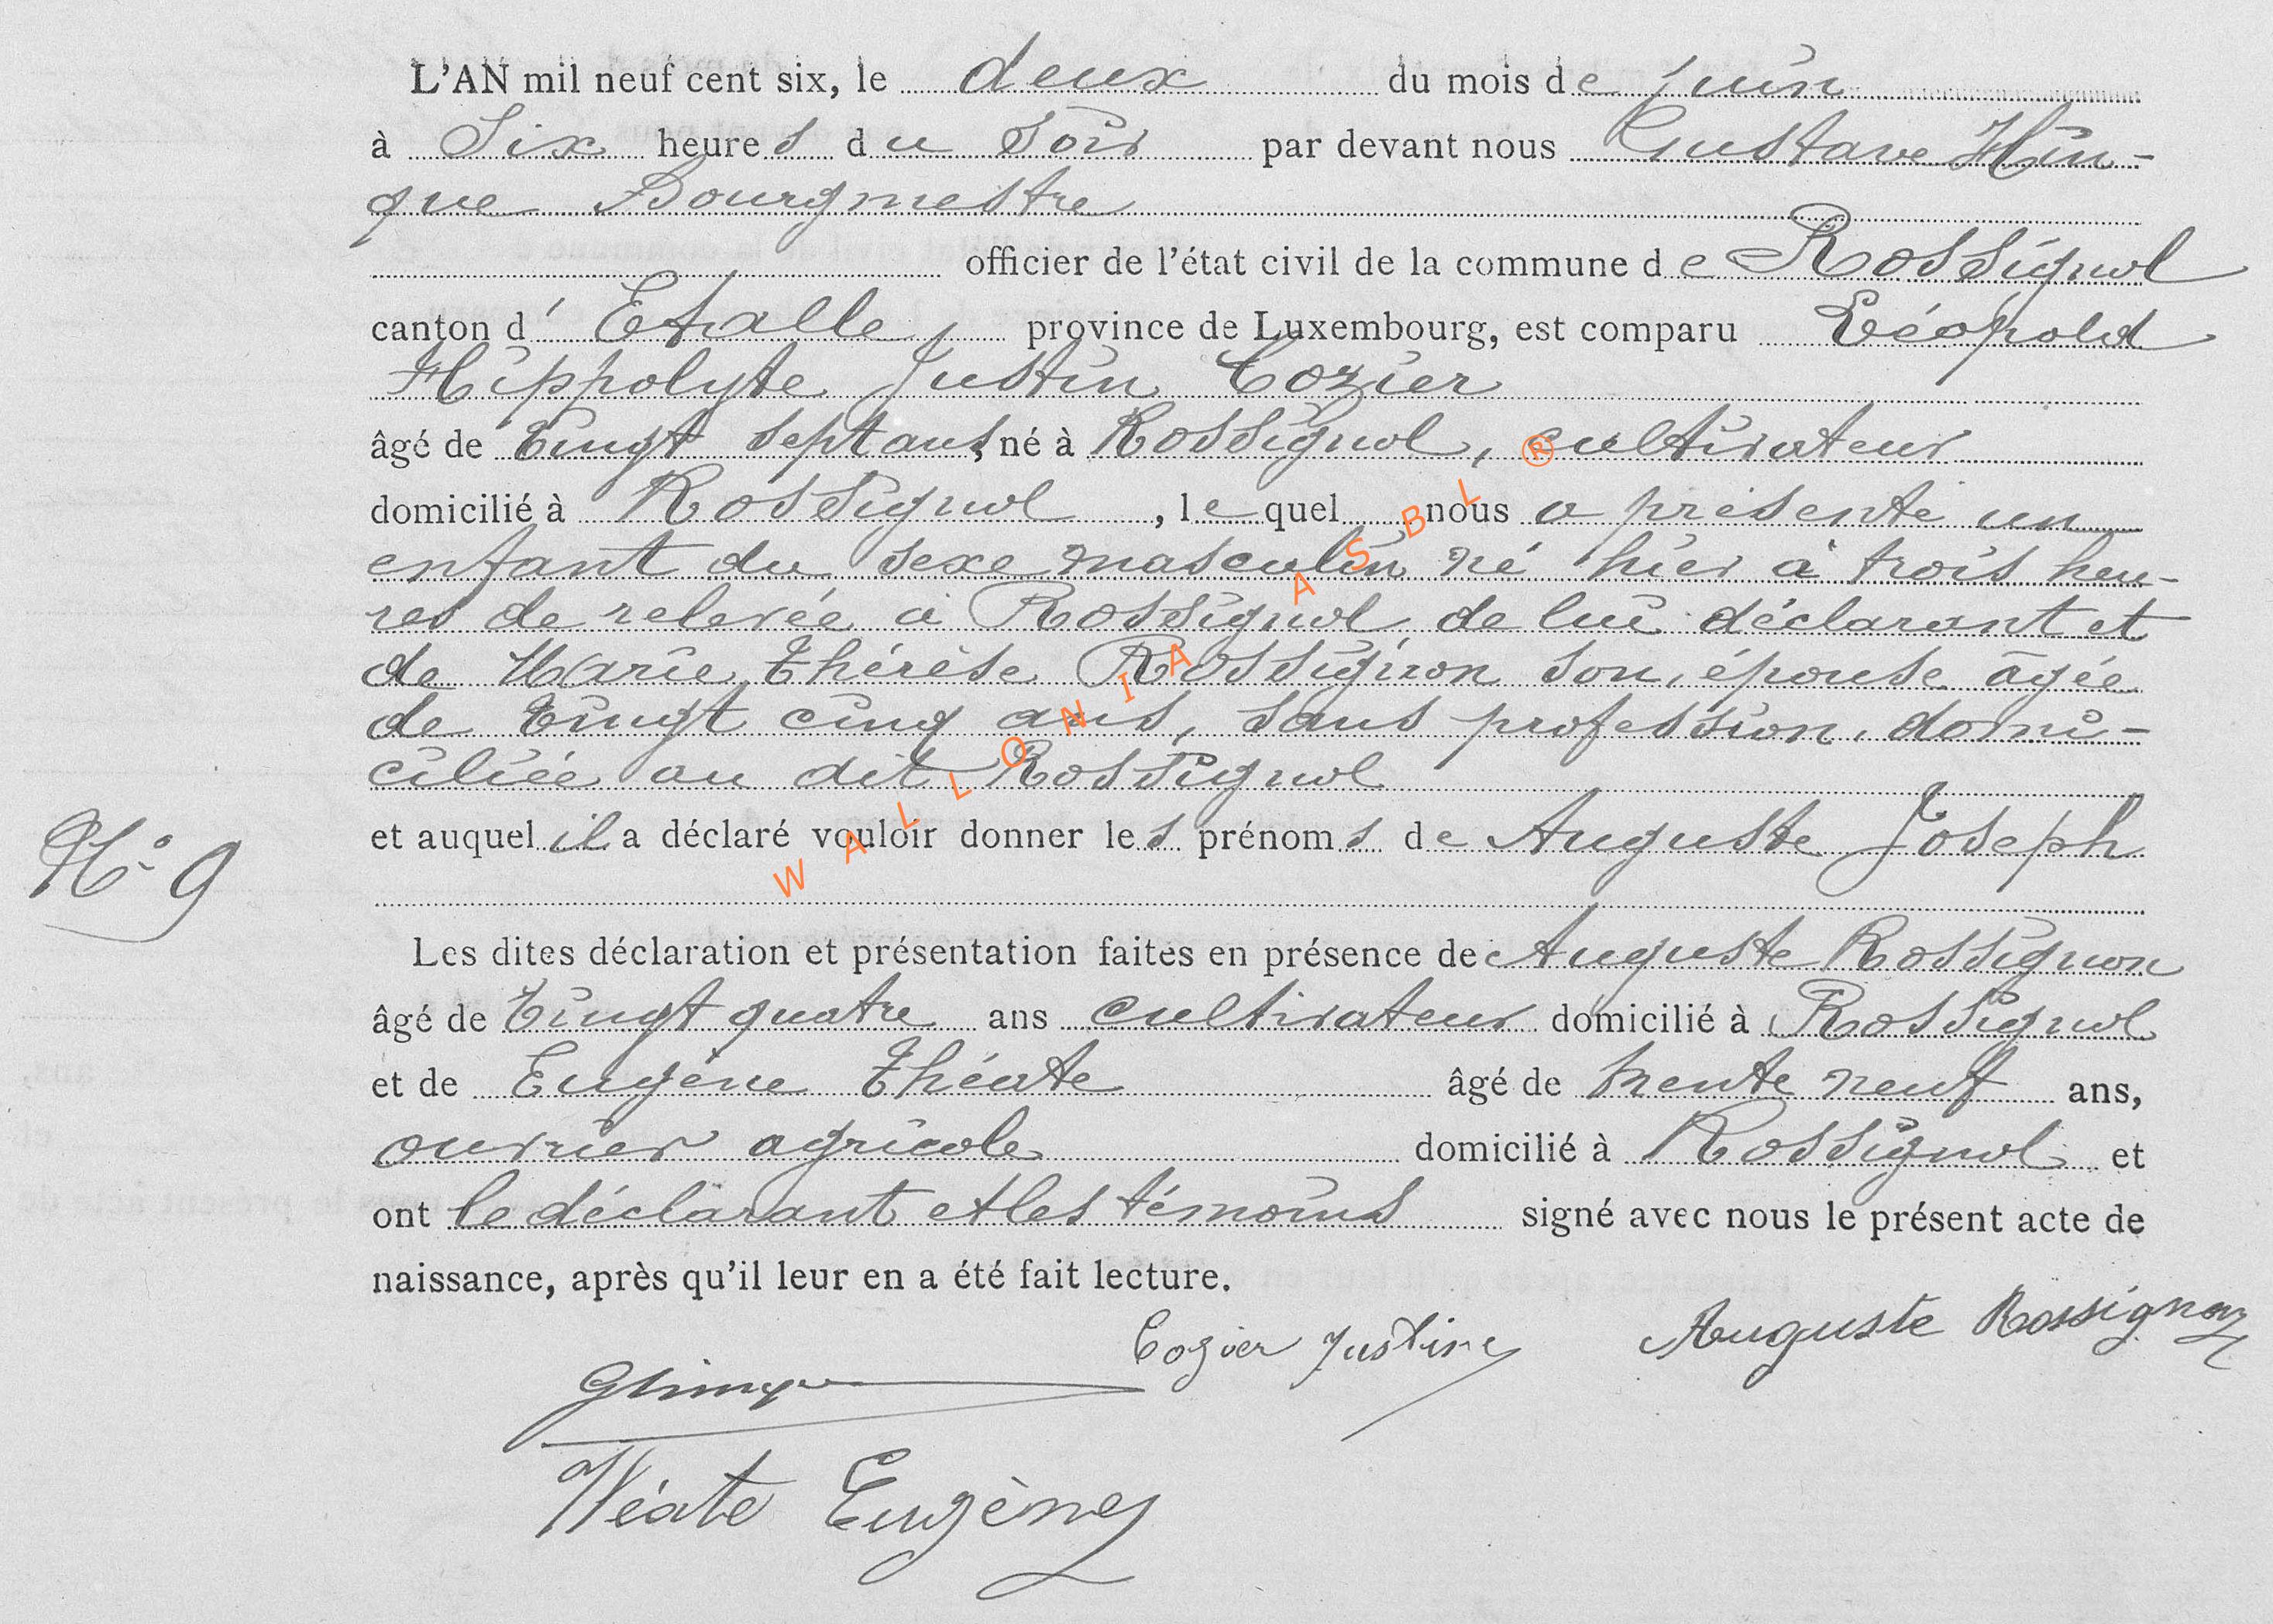 L'AN mil neuf cent six, le deux du mois de juin
à Six heures du soir par devant nous Gustave Hin-
que Bourgmestre
officier de l'état civil de la commune de Rossignol
canton d'Etalle, province de Luxembourg, est comparu Léopold
Hippolyte Justin Cozier
âgé de Vingt sept ans, né à Rossignol, cultivateur
domicilié à Rossignol, lequel nous a présenté un
enfant du sexe masculin né hier à trois heu-
res de relevée à Rossignol de lui déclarant et
de Marie Thérèse Rossignon son épouse âgée
de Vingt cinq ans, sans profession, domi-
ciliée au dit Rossignol
et auquel il a déclaré vouloir donner les prénoms de Auguste Joseph
N° 9
Les dites déclaration et présentation faites en présence de Auguste Rossignon
âgé de Vingt quatre ans cultivateur domicilié à Rossignol
et de Eugène Théate âgé de trente neuf ans,
ouvrier agricole domicilié à Rossignol et
ont le déclarant et les témoins signé avec nous le présent acte de
naissance, après qu'il leur en a été fait lecture.
Cozier Justin Auguste Rossignon
GHinque
Théate Eugène
WALLONIA ASBL ®